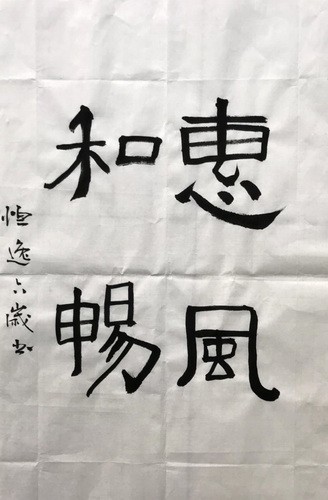 惠風
和暢
恒逸六歲书